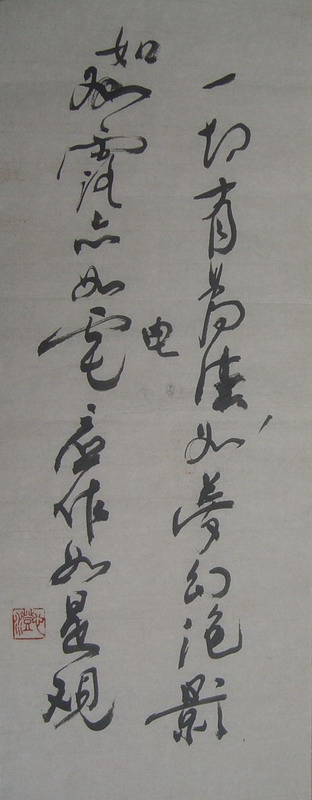 一切有為法如夢幻泡影
如露亦如電应作如是观
电